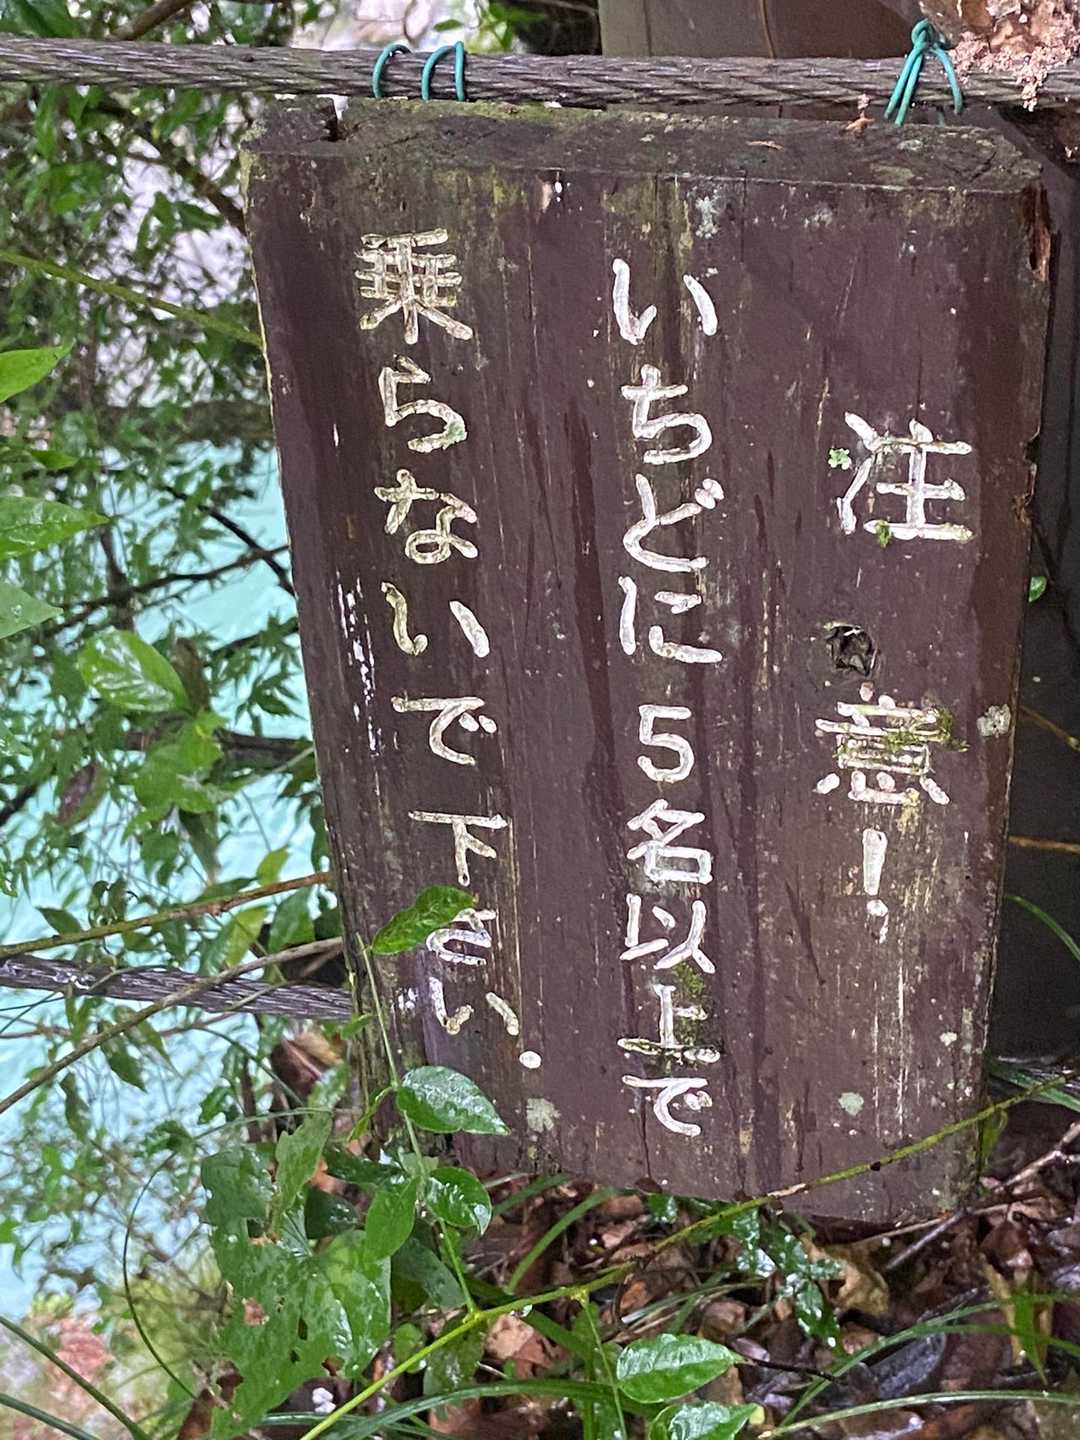 注意!
いちどに5名以上で
乗らないで下さい.